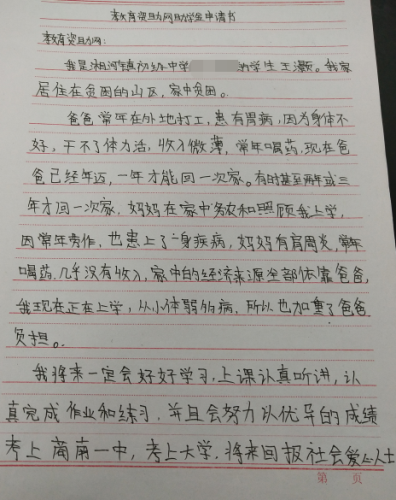 教育资助网助学金申请书
教育资助网:
我是湘河镇初级中学 的学生王灏。我家
居住在贫困的山区,家中贫困。
爸爸常年在外地打工,患有胃病,因为身体不
好,干不了体力活,收入微薄,常年喝药,现在爸
爸已经年迈,一年才能回一次家。有时甚至两年或三
年才回一次家,妈妈在家中务农和照顾我上学,
因常年劳作,也患上了一身疾病,妈妈有肩周炎,常年
喝药,几乎没有收入,家中的经济来源全部依靠爸爸,
我现在正在上学,从小体弱多病,所以也加重了爸爸
负担。
我将来一定会好好学习,上课认真听讲,认
真完成作业和练习,并且会努力以优异的成绩
考上商南一中,考上大学,将来回报社会爱心人士
第 页